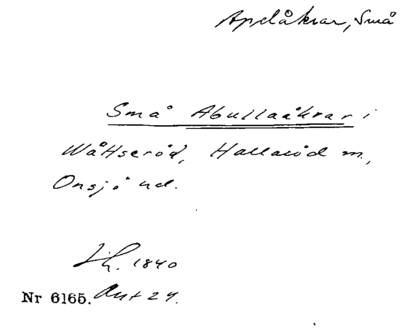 Apelåkrar, Små
Små Abullaåkrar i
Wåttseröd, Hallaröd sn,
Onsjö hd.
Lh. 1840
Nr 6165. Akt 27.